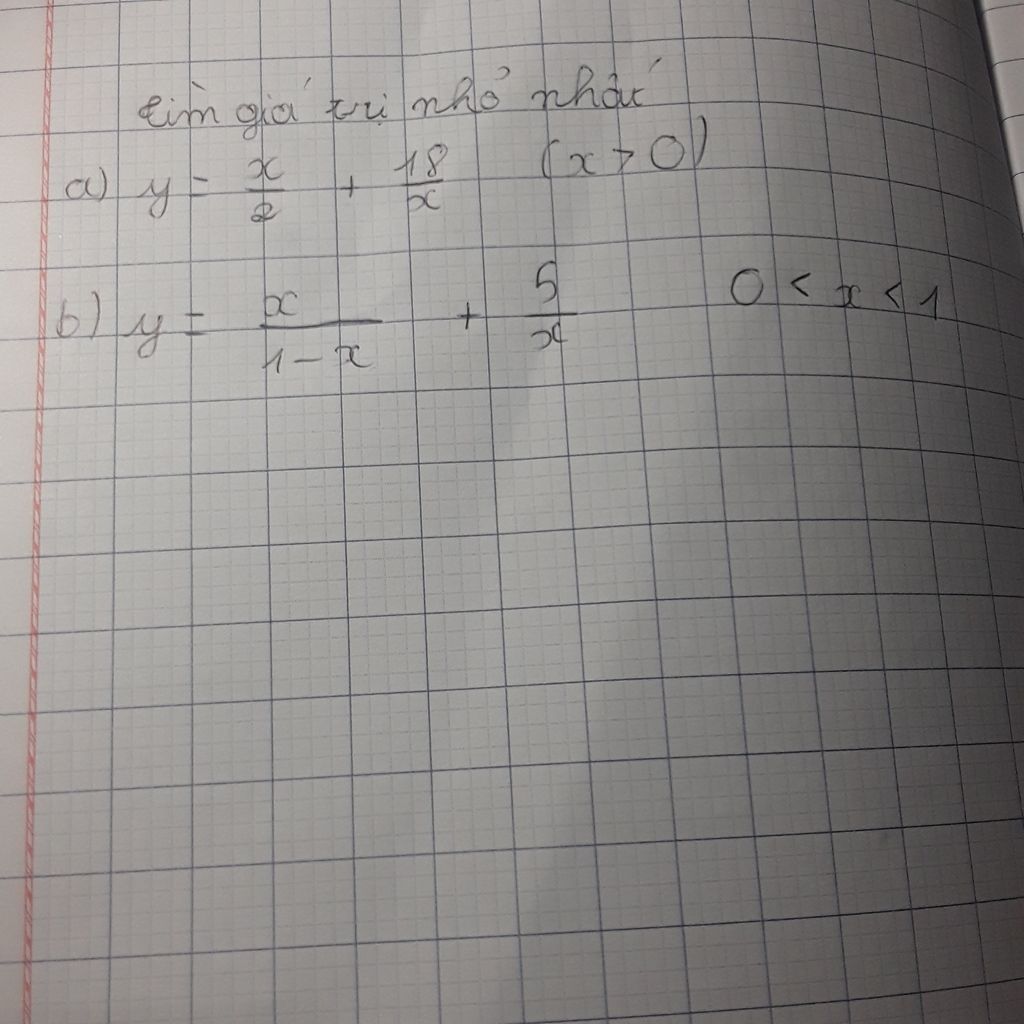 tìm giá trị nhỏ nhất
a) y = x/2 + 18/x (x > 0)
b) y = x/(1-x) + 5/x 0 < x < 1